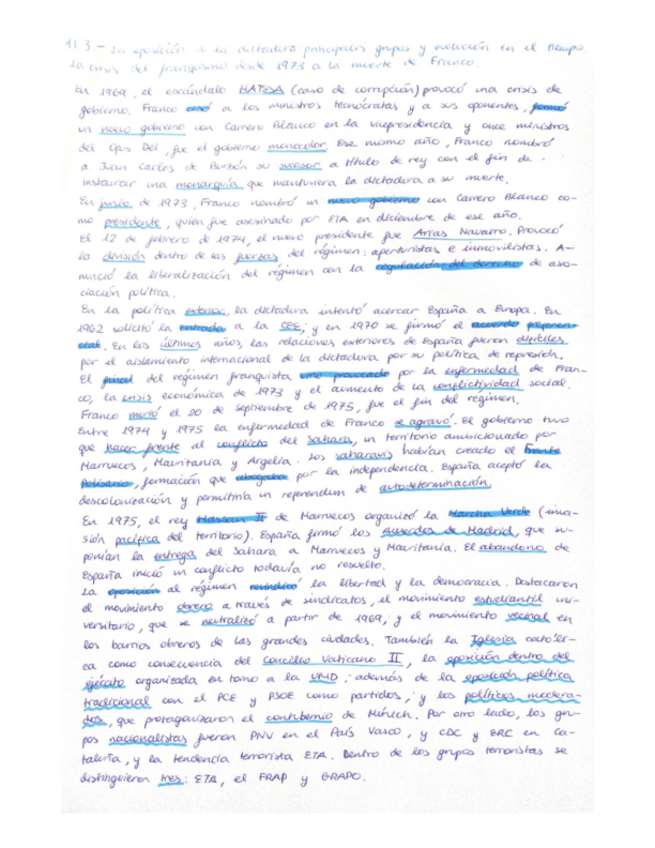 11.3 - La oposición a la dictadura, principales grupos y evolución en el tiempo.
La crisis del franquismo desde 1973 a la muerte de Franco.
En 1969, el escándalo MATESA (caso de corrupción) provocó una crisis de
gobierno. Franco cesó a los ministros tecnócratas y a sus oponentes, formó
un nuevo gobierno con Carrero Blanco en la vicepresidencia y once ministros
del Opus Dei, fue el gobierno monocolor. Ese mismo año, Franco nombró
a Juan Carlos de Borbón su sucesor a título de rey con el fin de
instaurar una monarquía que mantuviera la dictadura a su muerte.
En junio de 1973, Franco nombró un nuevo gobierno con Carrero Blanco co-
mo presidente, quien fue asesinado por ETA en diciembre de ese año.
El 12 de febrero de 1974, el nuevo presidente fue Arias Navarro. Provocó
la división dentro de las fuerzas del régimen: aperturistas e inmovilistas. A-
nunció la liberalización del régimen con la regulación del derecho de aso-
ciación política.
En la política exterior, la dictadura intentó acercar España a Europa. En
1962 solicitó la entrada a la CEE, y en 1970 se firmó el acuerdo preferen-
cial. En los últimos años, las relaciones exteriores de España fueron difíciles
por el aislamiento internacional de la dictadura por su política de represión.
El final del régimen franquista vino provocado por la enfermedad de Fran-
co, la crisis económica de 1973 y el aumento de la conflictividad social.
Franco murió el 20 de septiembre de 1975, fue el fin del régimen.
Entre 1974 y 1975 la enfermedad de Franco se agravó. El gobierno tuvo
que hacer frente al conflicto del Sahara, un territorio ambicionado por
Marruecos, Mauritania y Argelia. Los saharauis habían creado el Frente
Polisario, formación que abogaba por la independencia. España aceptó la
descolonización y permitiría un referendum de autodeterminación.
En 1975, el rey Hassan II de Marruecos organizó la Marcha Verde (inva-
sión pacífica del territorio). España firmó los Acuerdos de Madrid, que su-
ponían la entrega del Sahara a Marruecos y Mauritania. El abandono de
España inició un conflicto todavía no resuelto.
La oposición al régimen reivindicó la libertad y la democracia. Destacaron
el movimiento obrero a través de sindicatos, el movimiento estudiantil uni-
versitario, que se neutralizó a partir de 1969, y el movimiento vecinal en
los barrios obreros de las grandes ciudades. También la Iglesia católi-
ca como consecuencia del Concilio Vaticano II, la oposición dentro del
ejército organizada en torno a la UMD; además de la oposición política
tradicional con el PCE y PSOE como partidos, y los políticos modera-
dos, que protagonizaron el contubernio de Múnich. Por otro lado, los gru-
pos nacionalistas fueron PNV en el País Vasco, y CDC y ERC en Ca-
taluña, y la tendencia terrorista ETA. Dentro de los grupos terroristas se
distinguieron tres: ETA, el FRAP y GRAPO.